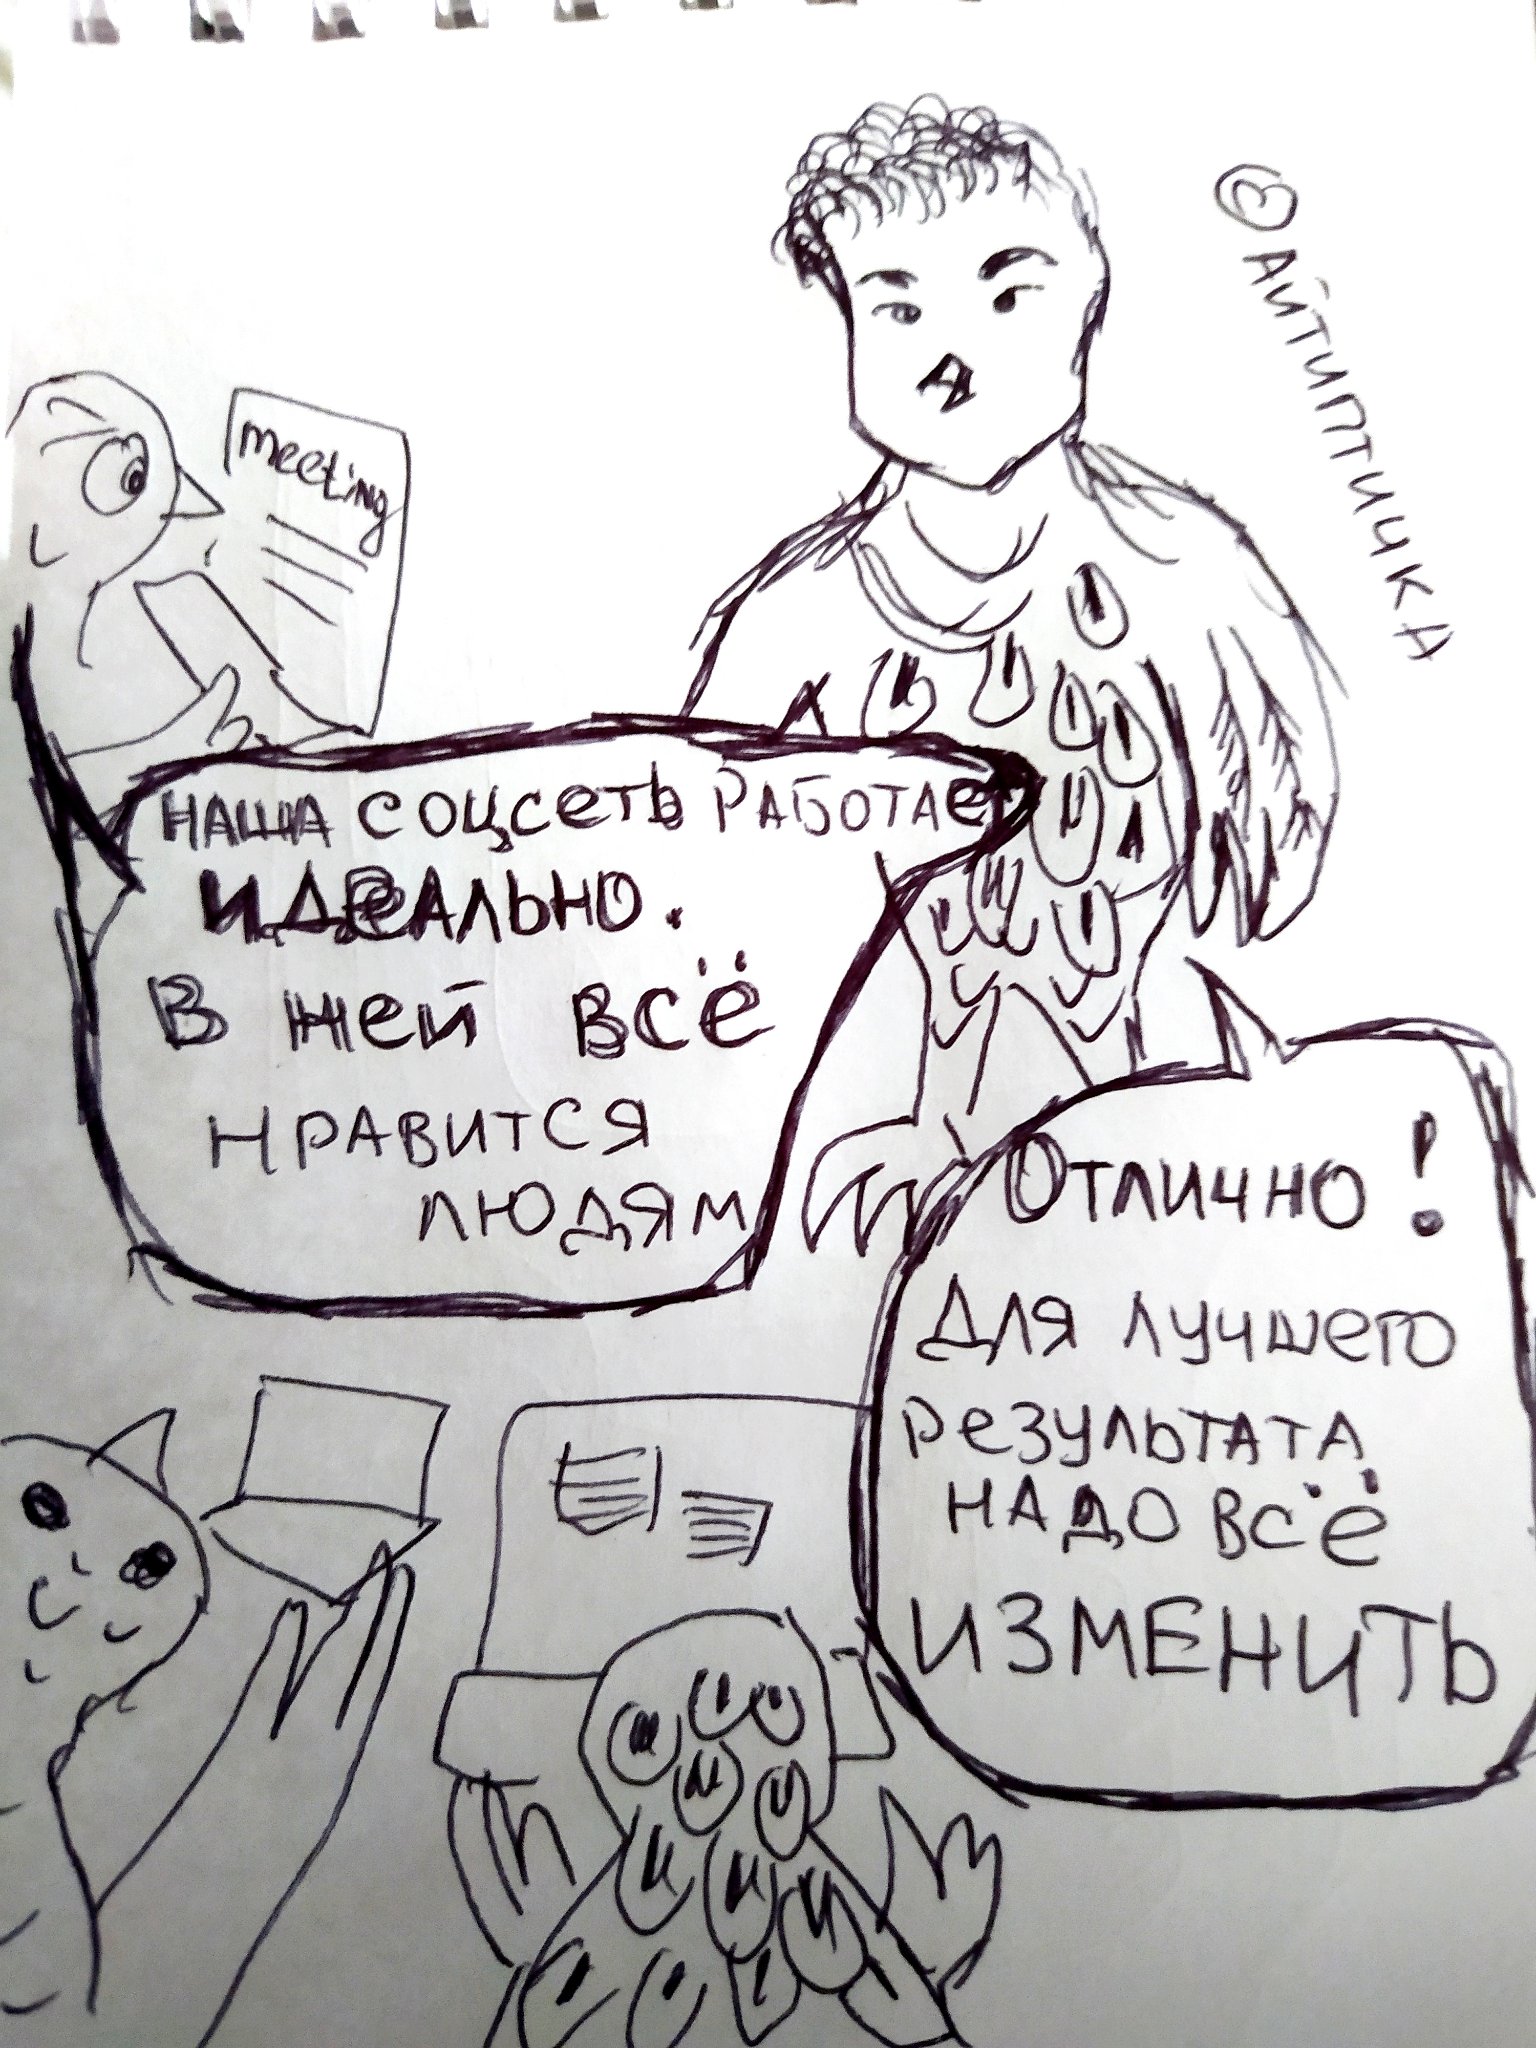 @АЙТИПТИЧКА
meeting
НАША СОЦСЕТЬ РАБОТАЕТ
ИДЕАЛЬНО.
В НЕЙ ВСЁ
НРАВИТСЯ
ЛЮДЯМ
ОТЛИЧНО!
ДЛЯ ЛУЧШЕГО
РЕЗУЛЬТАТА
НАДО ВСЁ
ИЗМЕНИТЬ